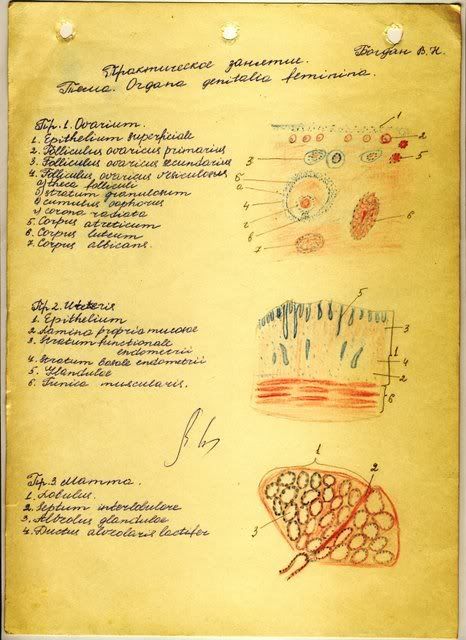 Богдан В.Н.
Практическое занятие.
Тема. Organa genitalia feminina.
Пр. 1. Ovarium.
1. Epithelium superficiale
2. Folliculus ovaricus primarius
3. Folliculus ovaricus secundarius
4. Folliculus ovaricus vesiculosus
а) theca folliculi
б) stratum granulosum
в) cumulus oophorus
г) corona radiata
5. Corpus atreticum
6. Corpus luteum
7. Corpus albicans.
1
2
3
5
б
а
4
г
в
6
7
Пр. 2. Uteris
1. Epithelium
2. Lamina propria mucosae
3. Stratum functionale
endometrii
4. Stratum basale endometrii
5. Glandulae
6. Tunica muscularis.
5
3
1
4
2
6
Пр. 3 Mamma.
1. Lobulus.
2. Septum interlobulare
3. Alveolus glandulae
4. Ductus alveolaris lactifer
1
2
3
4